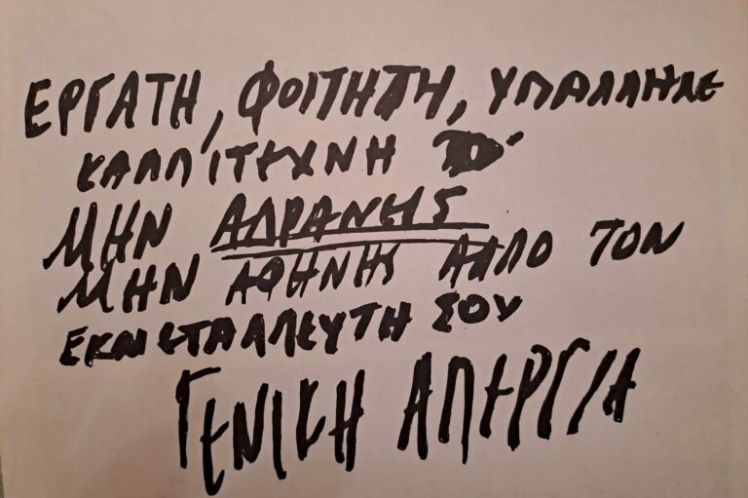 ΕΡΓΑΤΗ, ΦΟΙΤΗΤΗ, ΥΠΑΛΛΗΛΕ
ΚΑΛΛΙΤΕΧΝΗ
ΜΗΝ ΑΔΡΑΝΕΙΣ
ΜΗΝ ΑΦΗΝΕΙΣ ΑΛΛΟ ΤΟΝ
ΕΚΜΕΤΑΛΛΕΥΤΗ ΣΟΥ
ΓΕΝΙΚΗ ΑΠΕΡΓΙΑ